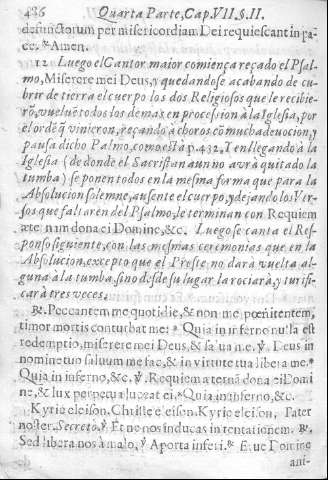 486 Quarta Parte, Cap. VII. §. II.
defunctorum per misericordiam Dei requiescant in pa-
ce. ℟ Amen.
12 Luego el Cantor maior comiença reçado el Psal-
mo, Miserere mei Deus, y quedandose acabando de cu-
brir de tierra el cuerpo los dos Religiosos que le recibie-
rō, vuelvē todos los demas en procession à la Iglesia, por
el ordē q̃ vinieron, reçando à choros cō mucha deuocion, y
pausa dicho Psalmo, como està p. 432. I en llegando à la
Iglesia (de donde el Sacristan aun no avrà quitado la
tumba) se ponen todos en la mesma forma que para la
Absolucion solemne, ausente el cuerpo, y dejando los Ver-
sos que faltarèn del Psalmo, le terminan con Requiem
æternam dona ei Domine, &c. Luego se canta el Res-
ponso siguiente, con las mesmas ceremonias que en la
Absolucion, excepto que el Preste no darà vuelta al-
guna à la tumba, sino desde su lugar la rociarà, y turifi-
carà tres veces.
℟. Peccantem me quotidie, & non me pœnitentem,
timor mortis conturbat me: * Quia in inferno nulla est
redemptio, miserere mei Deus, & salva me. ℣. Deus in
nomine tuo salvum me fac, & in virtute tua libera me. *
Quia in inferno, &c. ℣. Requiem æternā dona ei Domi
ne, & lux perpetua luceat ei. * Quia in inferno, &c.
Kyrie eleison. Christe eleison. Kyrie eleison. Pater
noster. Secretò. ℣. Et ne nos inducas in tentationem. ℟.
Sed libera nos à malo. ℣. Aporta inferi. ℟. Erue Domine
ani-